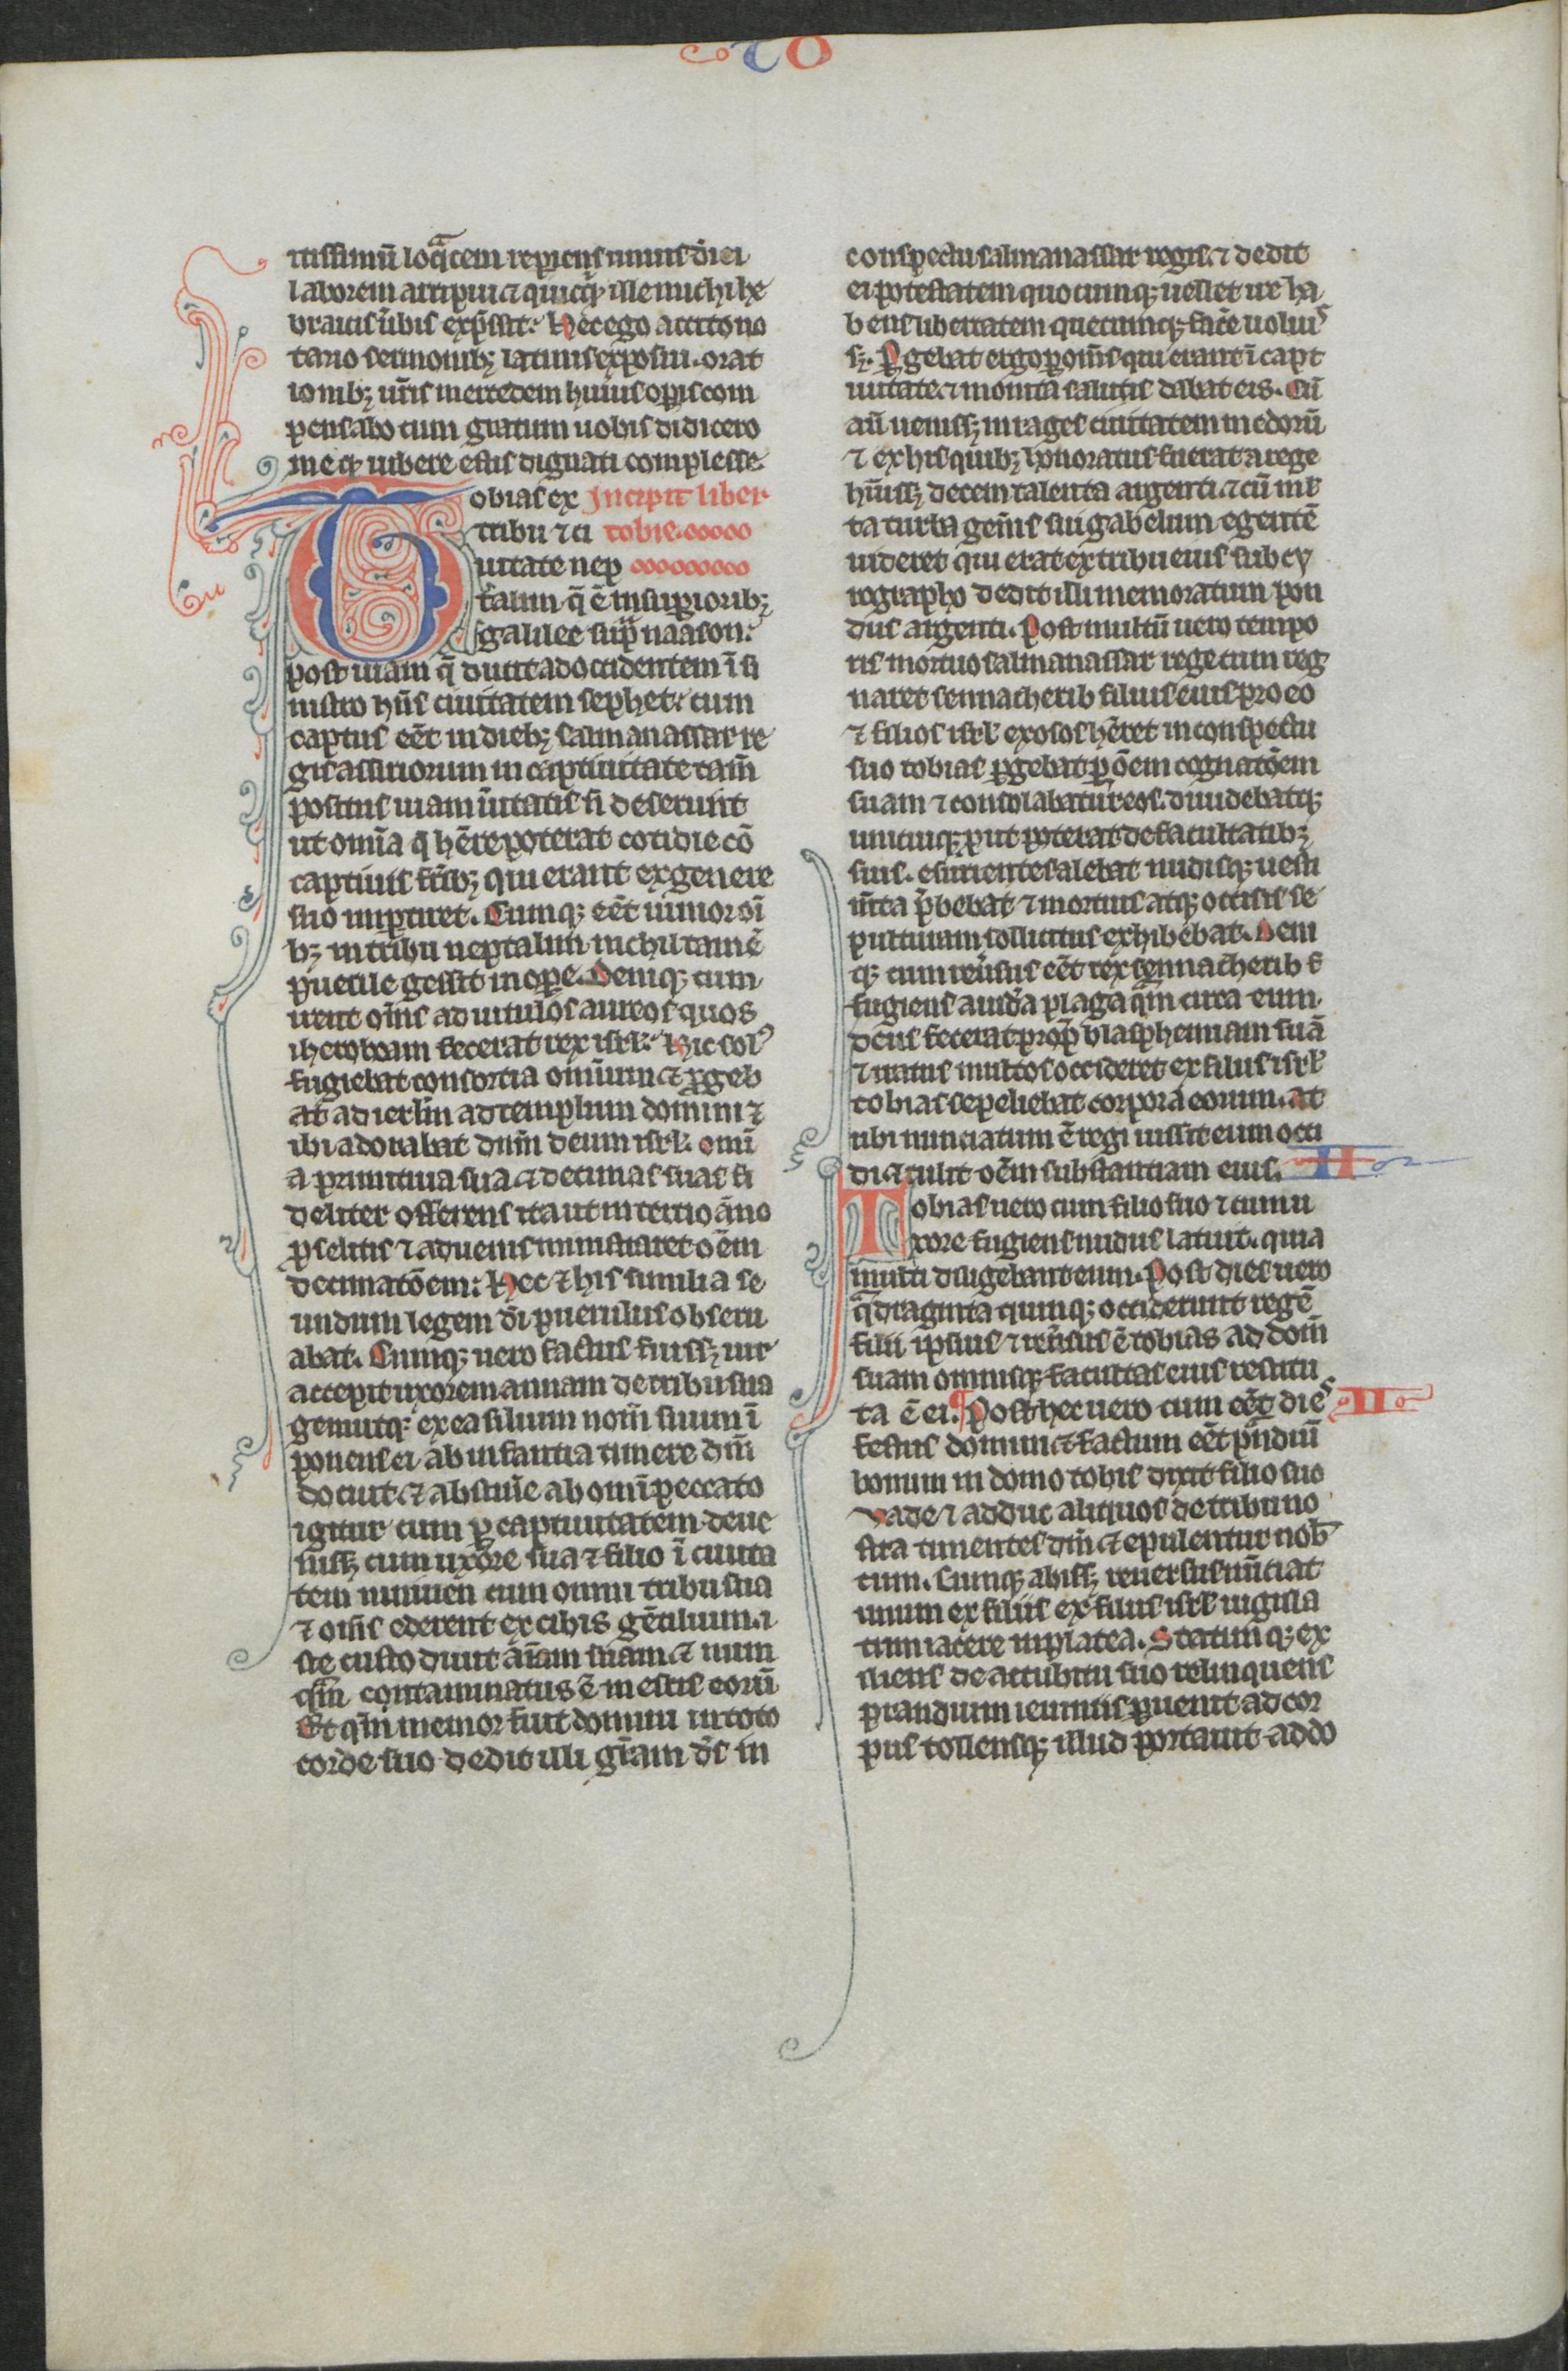 TO
ritissimū loq̄cem reperiens unius diei
laborem arripui ⁊ quicq̄d ille michi he
braicis ūbis exp̄ssit. Hec ego accito no
tario sermonibꝫ latinis exposui. orat
ionibꝫ ur̄is mercedem huius oꝑis com
pensabo cum gratum uobis didicero
me qd̄ iubere estis dignati complesse.
Tobias ex Incipit liber
tribu ⁊ ci tobie.
uitate nep
talim q̄ ē in suꝑioribꝫ
galilee sup̄ naason.
post uiam q̄ ducit ad occidentem ī si
nistro hn̄s ciuitatem sephet. cum
captus eēt in diebꝫ salmanassar re
gis assiriorum in captiuitate tam̄
positus uiam ūitatis n̄ deseruit
ut omīa q̄ hēre poterat cotidie cō
captiuis frībꝫ qui erant ex genere
suo imꝑtiret. Cumqꝫ eēt iunior oī
bꝫ in tribu neptalim nichil tamē
puerile gessit in oꝑe. Deniqꝫ cum
irent om̄s ad uitulos aureos quos
iheroboam fecerat rex isrl̄. Hic solꝰ
fugiebat consortia omnium ⁊ ꝑgeb
at ad ierl̄m ad templum domini ⁊
ibi adorabat dn̄m deum isrl̄. omī
a primitiua sua ⁊ decimas suas fi
deliter offerens ita ut in tercio āno
ꝓselitis ⁊ aduenis ministraret oēm
decimatōem: Hec ⁊ his similia se
undum legem dī puerulus obseru
abat. Cumqꝫ uero factus fuissꝫ uir
accepit uxorem annam de tribu sua
genuitqꝫ ex ea filium nom̄ suum ī
ponens ei ab infantia timere dm̄
docuit ⁊ abstinē ab omī peccato
igitur cum ꝑ captiuitatem deue
nissꝫ cum uxore sua ⁊ filio ī ciuita
tem niniuen cum omni tribu sua
⁊ om̄s ederent ex cibis gētilium. i
ste custodiuit aīam suam ⁊ num
q̄m contaminatus ē in escis eorū
Et qm̄ memor fuit domini in toto
corde suo dedit illi gr̄am dс̄ in
conspectu salmanassar regis. ⁊ dedit
ei potestatem quocumqꝫ uellet ire ha
bens libertatem quecumqꝫ facē uoluiˢ
sꝫ. Ꝑgebat ergo ꝑ om̄s qui erant ī capt
iuitate ⁊ monita salutis dabat eis. Cū
aū uenissꝫ in rages ciuitatem medorū
⁊ ex his quibꝫ honoratus fuerat a rege
hūissꝫ decem talenta argenti. ⁊ cū ml
ta turba gen̄is sui gabelum egentē
uideret qui erat ex tribu eius sub cy
rographo dedit illi memoratum pon
dus argenti. Post multū uero tempo
ris mortuo salmanassar rege cum reg
naret sennacherib filius eius pro eo
⁊ filios isrl̄ exosos hēret in conspectu
suo tobias ꝑgebat ꝑ oēm cognatōem
suam ⁊ consolabatur eos. diuidebatqꝫ
unicuiqꝫ put poterat de facultatibꝫ
suis. esurientes alebat nudisqꝫ uesti
m̄ta p̄bebat ⁊ mortuis atqꝫ occisis se
pulturam sollicitus exhibebat. Deni
qꝫ cum reūsus eēt rex sennacherib
fugiens a iudea plaga q̄m circa eum
deus fecerat propt̄ blasphemiam suā
⁊ iratus multos occideret ex filiis isrl̄
tobias sepeliebat corpora eorum. at
ubi nunciatum ē regi iussit eum occi
di ⁊ tulit oēm substantiam eius. II
Tobias uero cum filio suo ⁊ cum u
xore fugiens nudus latuit. quia
multi diligebant eum. Post dies uero
q̄draginta quinqꝫ occiderunt regē
filii ipsius ⁊ reūsus ē tobias ad dom̄
suam omnisqꝫ facultas eius restitu
ta ē ei. ¶ Post hec uero cum eēt dieˢ II
festus domini ⁊ factum eēt prandiū
bonum in domo tobis dixit filio suo
Vade ⁊ adduc aliquos de tribu no
stra timentes dm̄ ⁊ epulentur nob̄
cum. Cumqꝫ abissꝫ reuersus nūciat
unum ex filiis ex filiis isrl̄ iugula
tum iacere in platea. Statimqꝫ ex
siliens de accubitu suo relinquens
prandium ieiunus ꝑuenit ad cor
pus tollensqꝫ illud portauit ad do